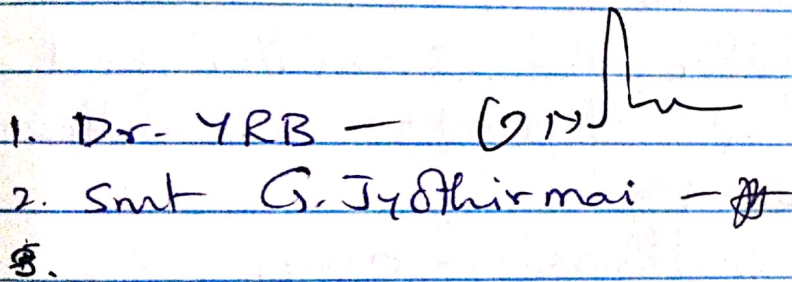 1. Dr. YRB –
2. Smt G. Jyothirmai –
3.